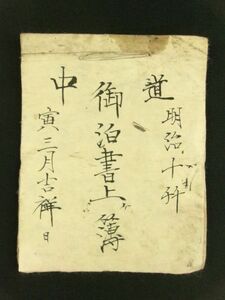 道
中
明治十一年
御泊書上簿
寅三月吉祥日